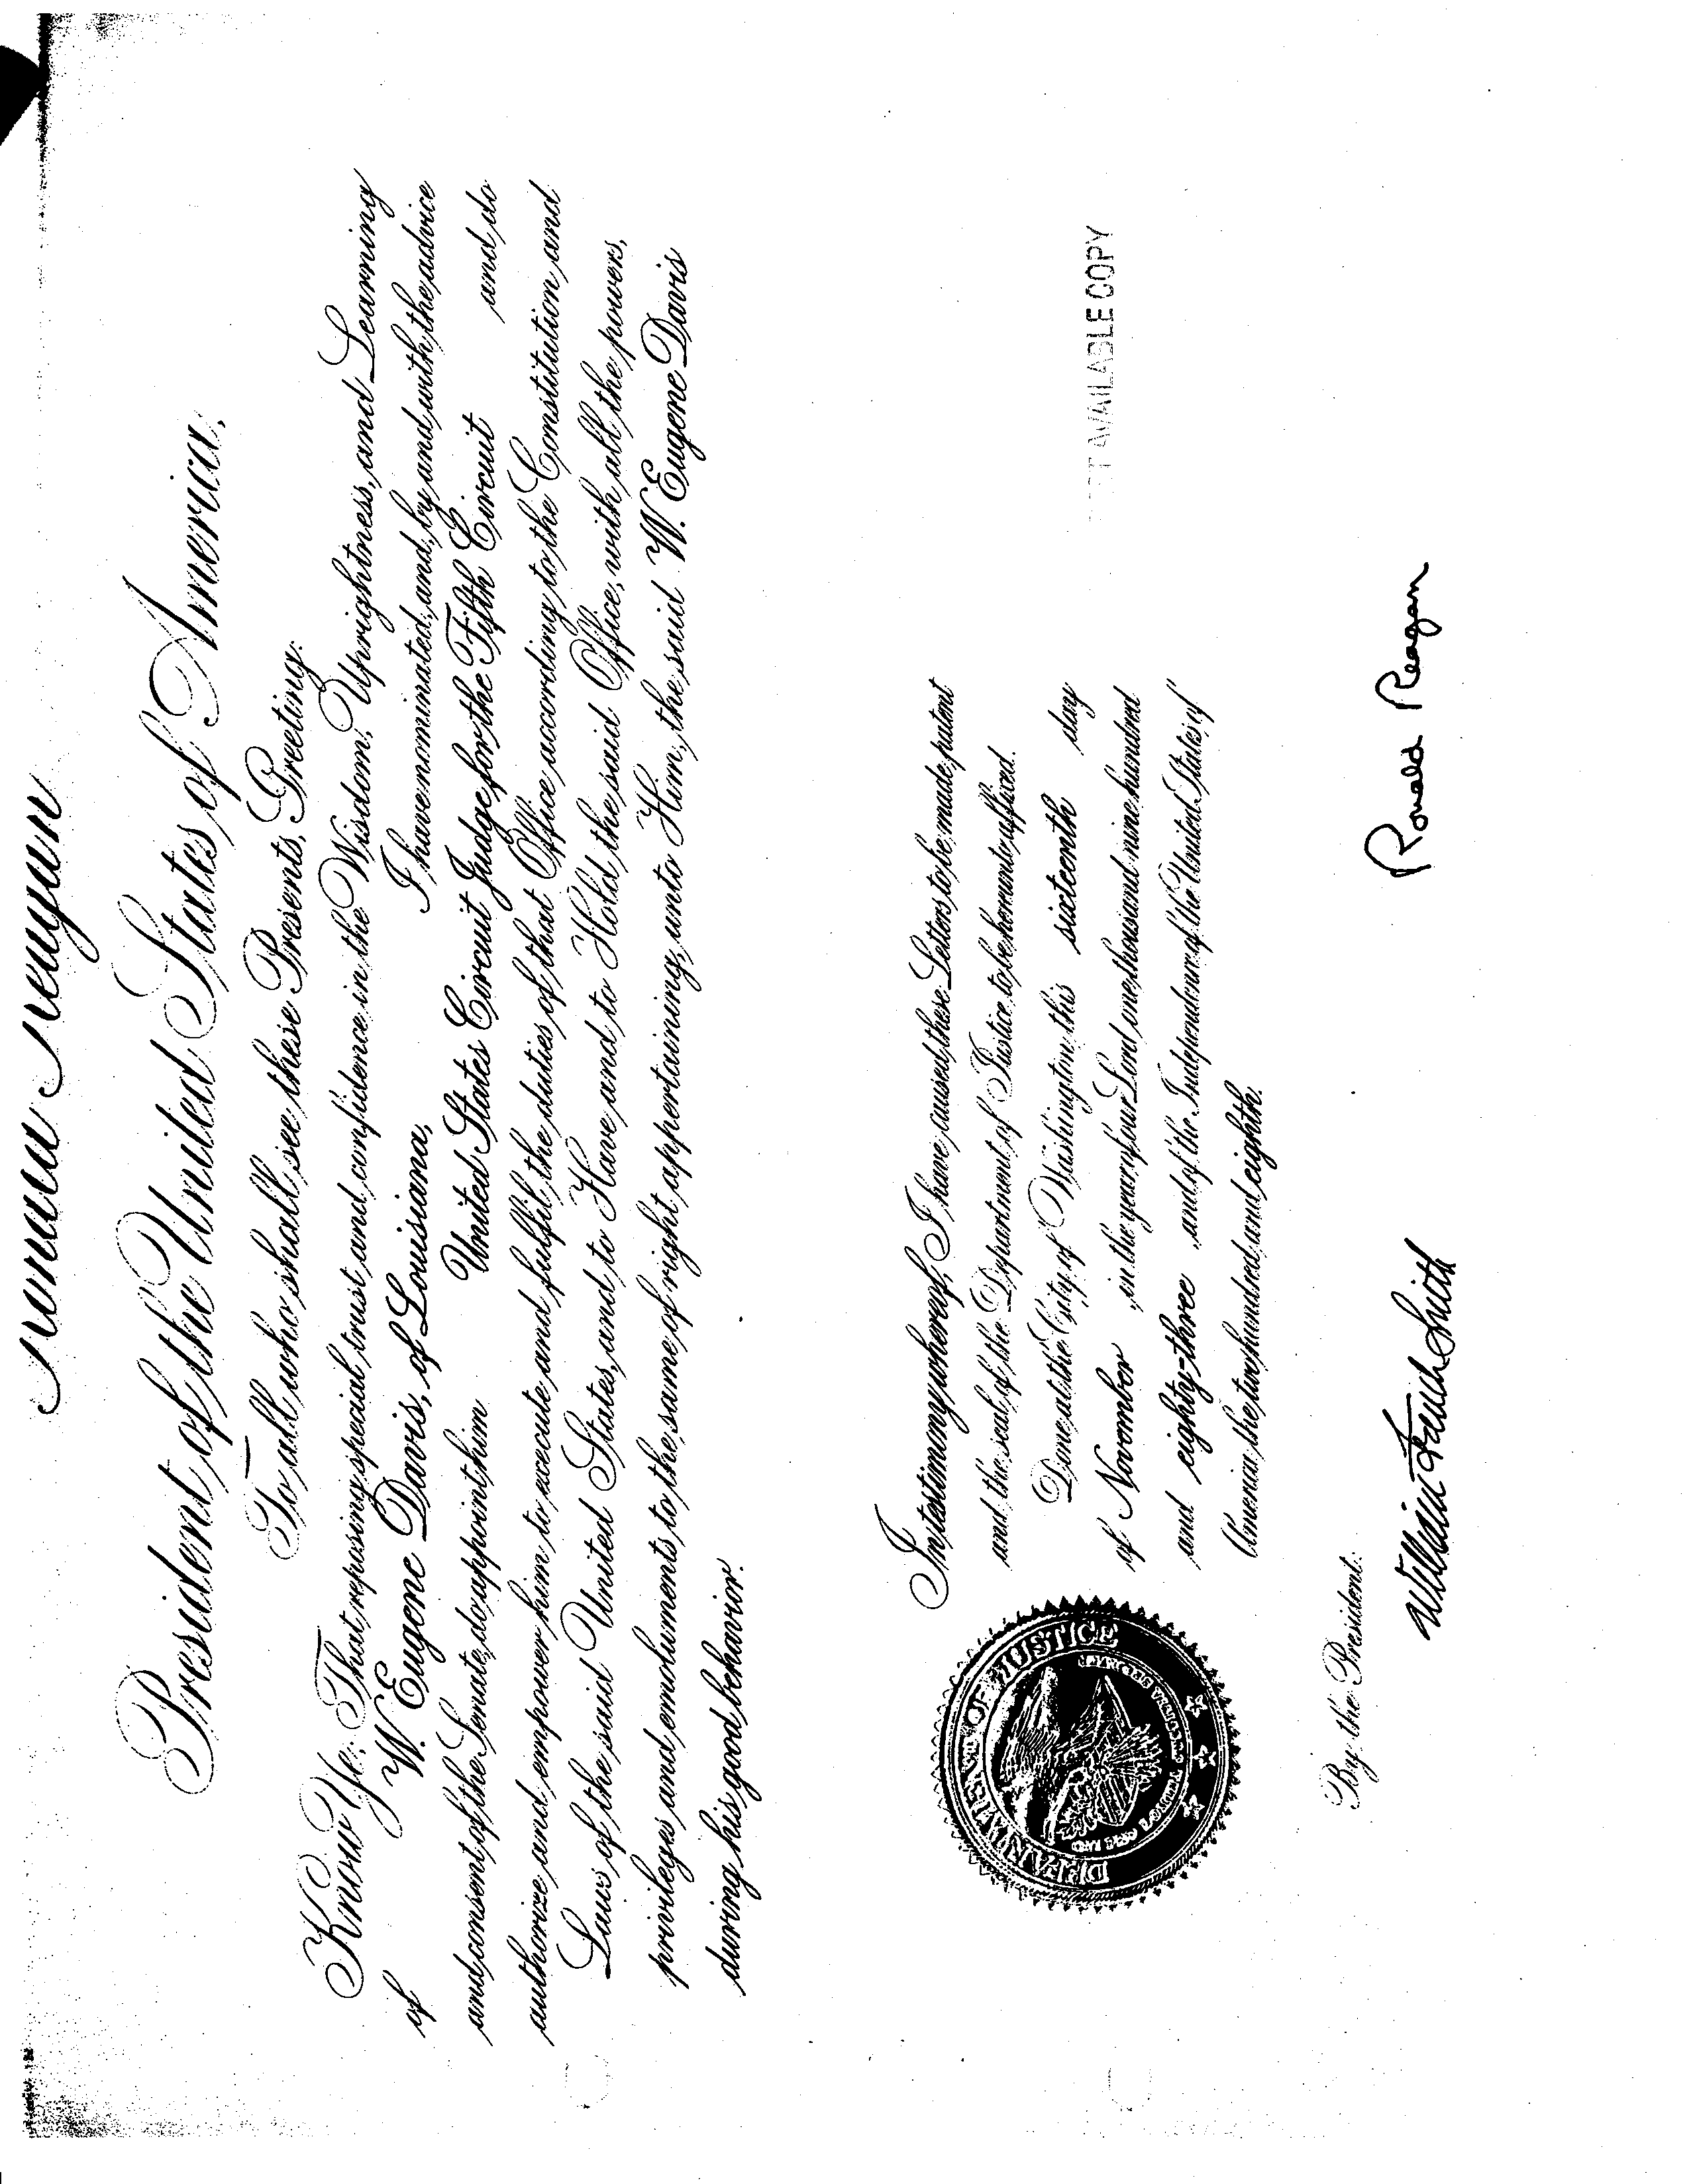 President of the United States of America,
To all who shall see these Presents, Greeting:
Know Ye; That reposing special trust and confidence in the Wisdom, Uprightness, and Learning
of W. Eugene Davis, of Louisiana, I have nominated, and, by and with the advice
and consent of the Senate, do appoint him United States Circuit Judge for the Fifth Circuit and do
authorize and empower him to execute and fulfil the duties of that Office according to the Constitution and
Laws of the said United States, and to Have and to Hold the said Office, with all the powers,
privileges and emoluments to the same of right appertaining, unto Him, the said W. Eugene Davis
during his good behavior.
In testimony whereof, I have caused these Letters to be made patent
and the seal of the Department of Justice to be hereunto affixed.
Done at the City of Washington this sixteenth day
of November, in the year of our Lord one thousand nine hundred
and eighty-three, and of the Independence of the United States of
America the two hundred and eighth.
AVAILABLE COPY
DEPARTMENT OF JUSTICE
Ronald Reagan
By the President:
William French Smith